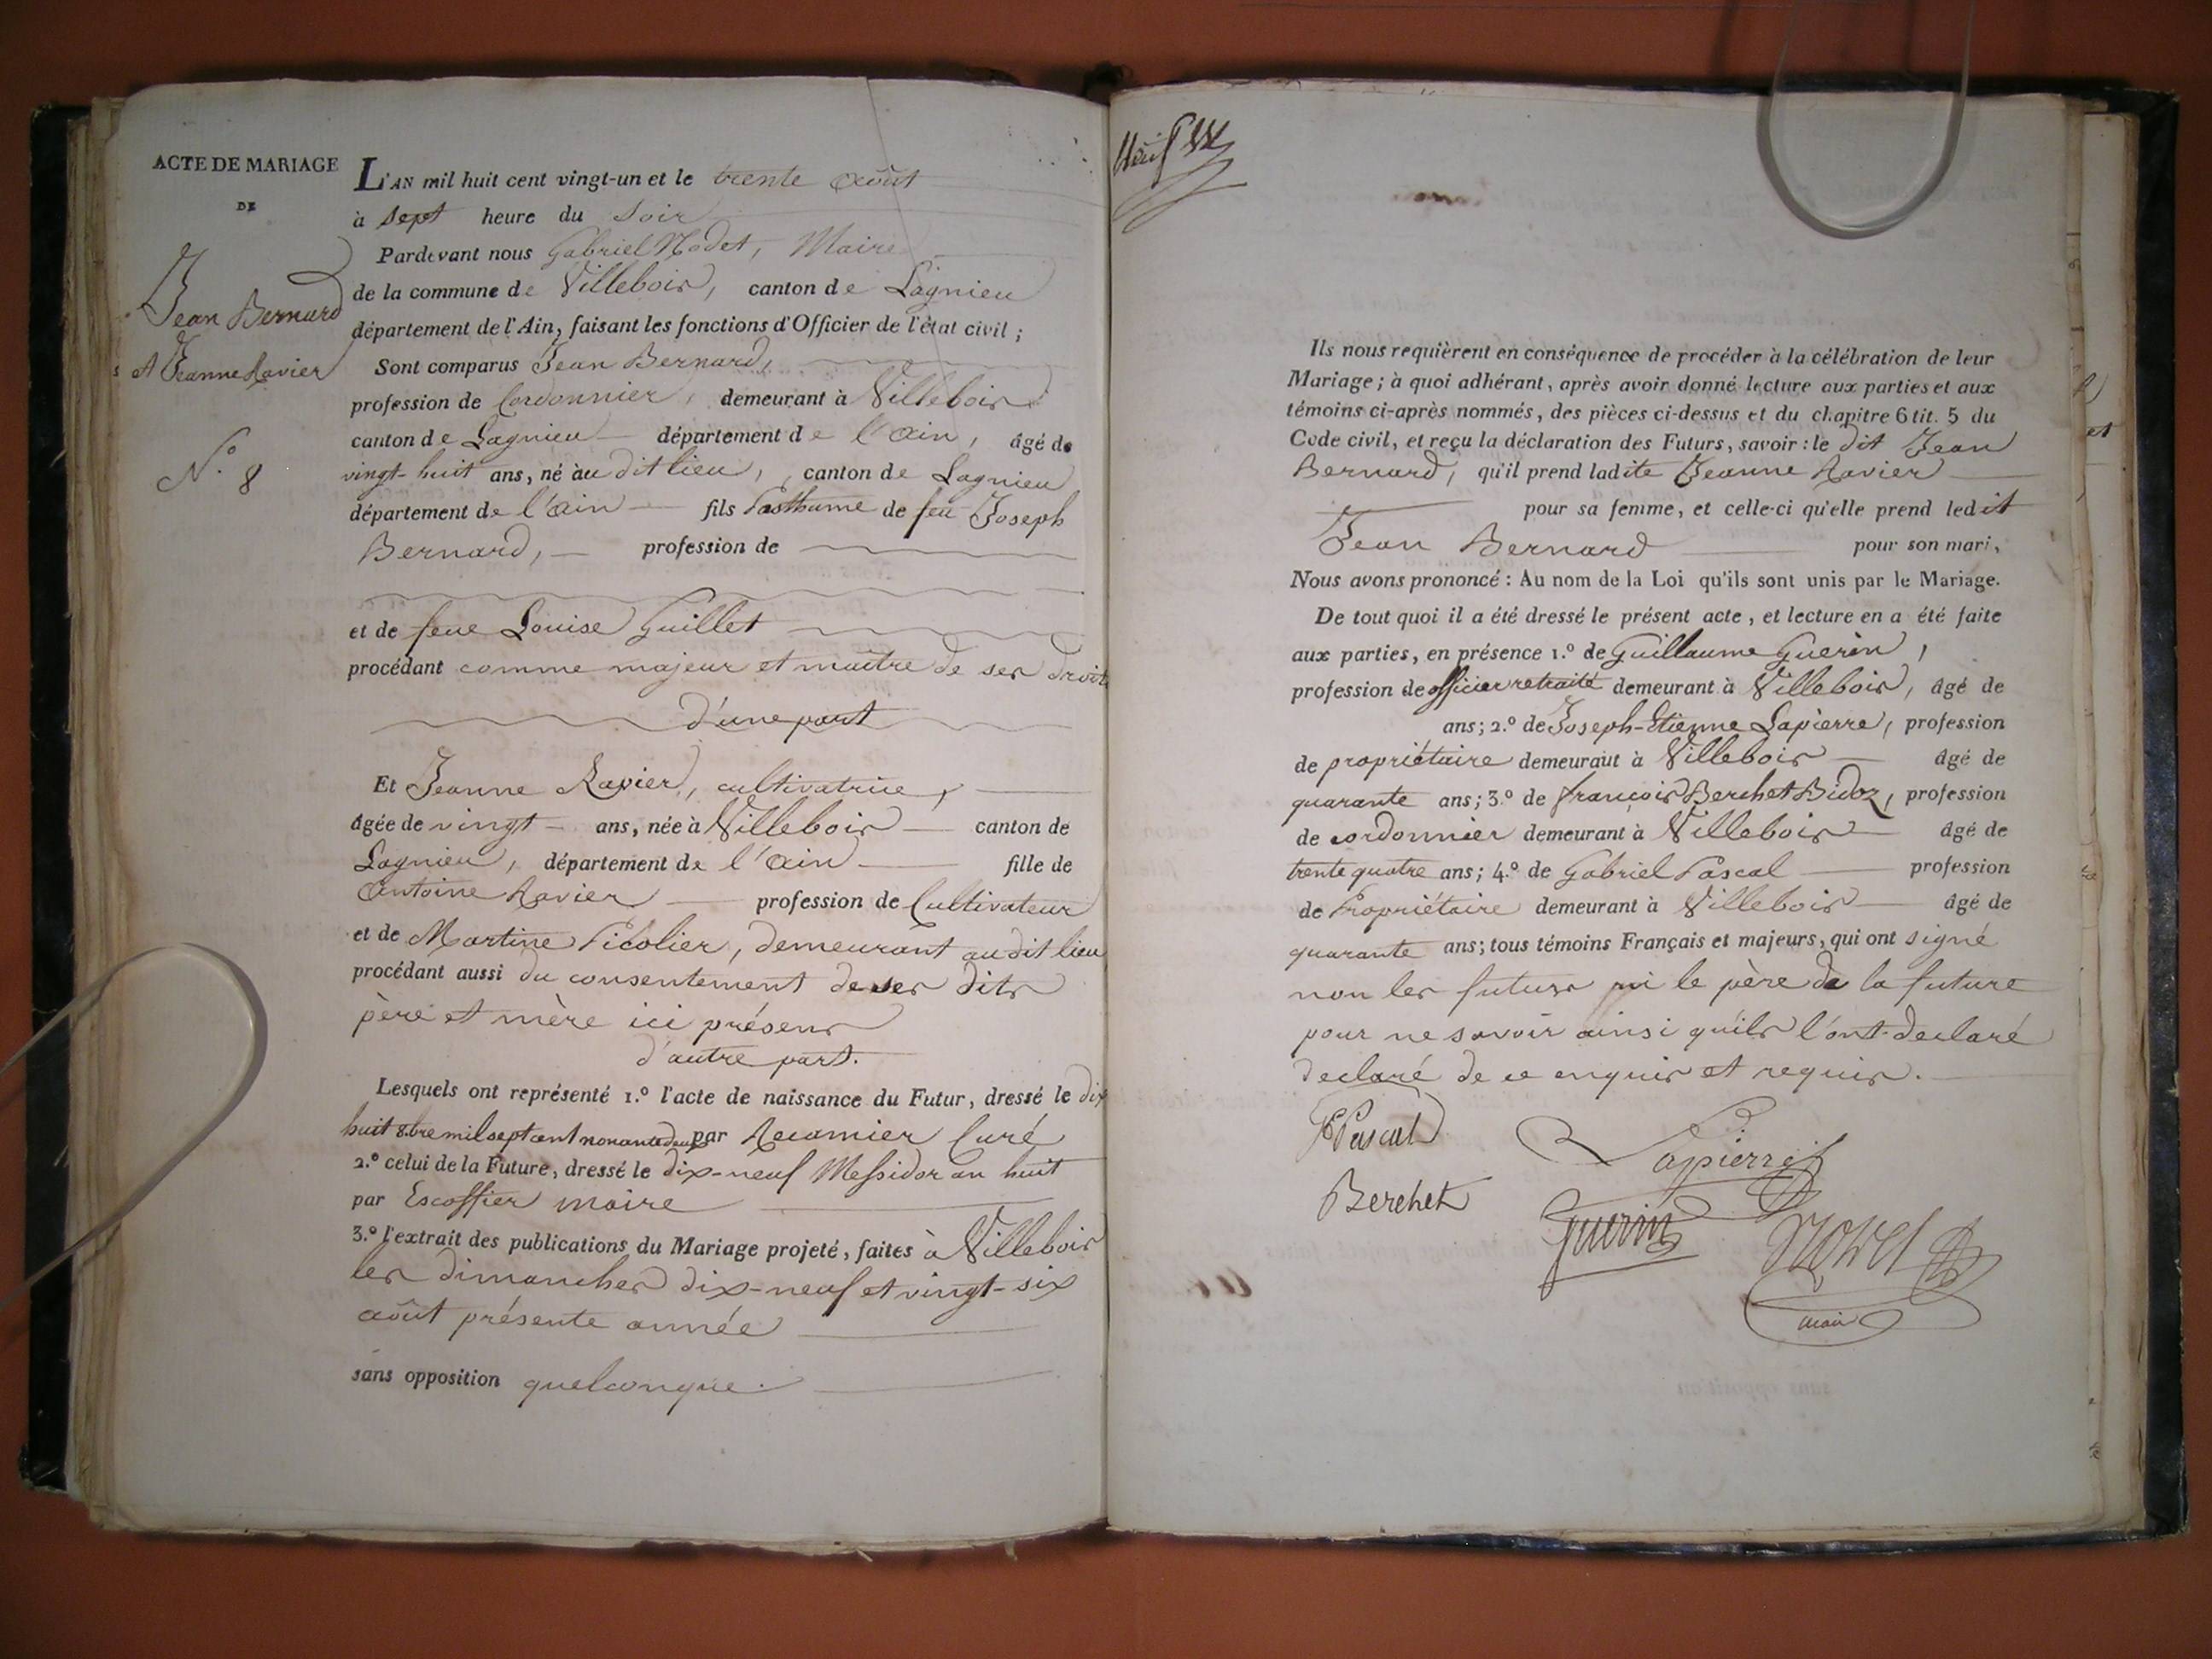 ACTE DE MARIAGE
DE
Jean Bernard
et Jeanne Ravier
N.° 8
L'AN mil huit cent vingt-un et le trente août
à sept heure du soir
Pardevant nous Gabriel Nodet, Maire
de la commune de Villebois, canton de Lagnieu
département de l'Ain, faisant les fonctions d'Officier de l'état civil ;
Sont comparus Jean Bernard,
profession de Cordonnier, demeurant à Villebois
canton de Lagnieu département de l'ain, âgé de
vingt-huit ans, né àu dit lieu, canton de Lagnieu
département de l'ain fils Posthume de feu Joseph
Bernard, profession de
et de feue Louise Guillet
procédant comme majeur et maître de ses droits
d'une part
Et Jeanne Ravier, cultivatrice,
âgée de vingt ans, née à Villebois canton de
Lagnieu, département de l'ain fille de
Antoine Ravier profession de Cultivateur
et de Martine Picolier, demeurant audit lieu
procédant aussi du consentement de ses dits
père et mère ici présens
d'autre part.
Lesquels ont représenté 1.° l'acte de naissance du Futur, dressé le dix
huit 8.bre mil sept cent nonante deux par Recamier Curé
2.° celui de la Future, dressé le dix-neuf Messidor an huit
par Escoffier maire
3.° l'extrait des publications du Mariage projeté, faites à Villebois
les dimanches dix-neuf et vingt-six
août présente année
sans opposition quelconque.
Neuf
Ils nous requièrent en conséquence de procéder à la célébration de leur
Mariage ; à quoi adhérant, après avoir donné lecture aux parties et aux
témoins ci-après nommés, des pièces ci-dessus et du chapitre 6 tit. 5 du
Code civil, et reçu la déclaration des Futurs, savoir : le dit Jean
Bernard, qu'il prend ladite Jeanne Ravier
pour sa femme, et celle-ci qu'elle prend ledit
Jean Bernard pour son mari,
Nous avons prononcé : Au nom de la Loi qu'ils sont unis par le Mariage.
De tout quoi il a été dressé le présent acte, et lecture en a été faite
aux parties, en présence 1.° de Guillaume Guerin,
profession de officier retraité demeurant à Villebois, âgé de
ans ; 2.° de Joseph-Etienne Lapierre, profession
de propriétaire demeurant à Villebois âgé de
quarante ans ; 3.° de françois Berchet Bidoz, profession
de cordonnier demeurant à Villebois âgé de
trente quatre ans ; 4.° de Gabriel Pascal profession
de Propriétaire demeurant à Villebois âgé de
quarante ans ; tous témoins Français et majeurs, qui ont signé
non les futurs ni le père de la future
pour ne savoir ainsi qu'ils l'ont declaré
declaré de ce enquis et requis.
Pascal
Lapierre
Berchet
Guerin
Nodet
maire